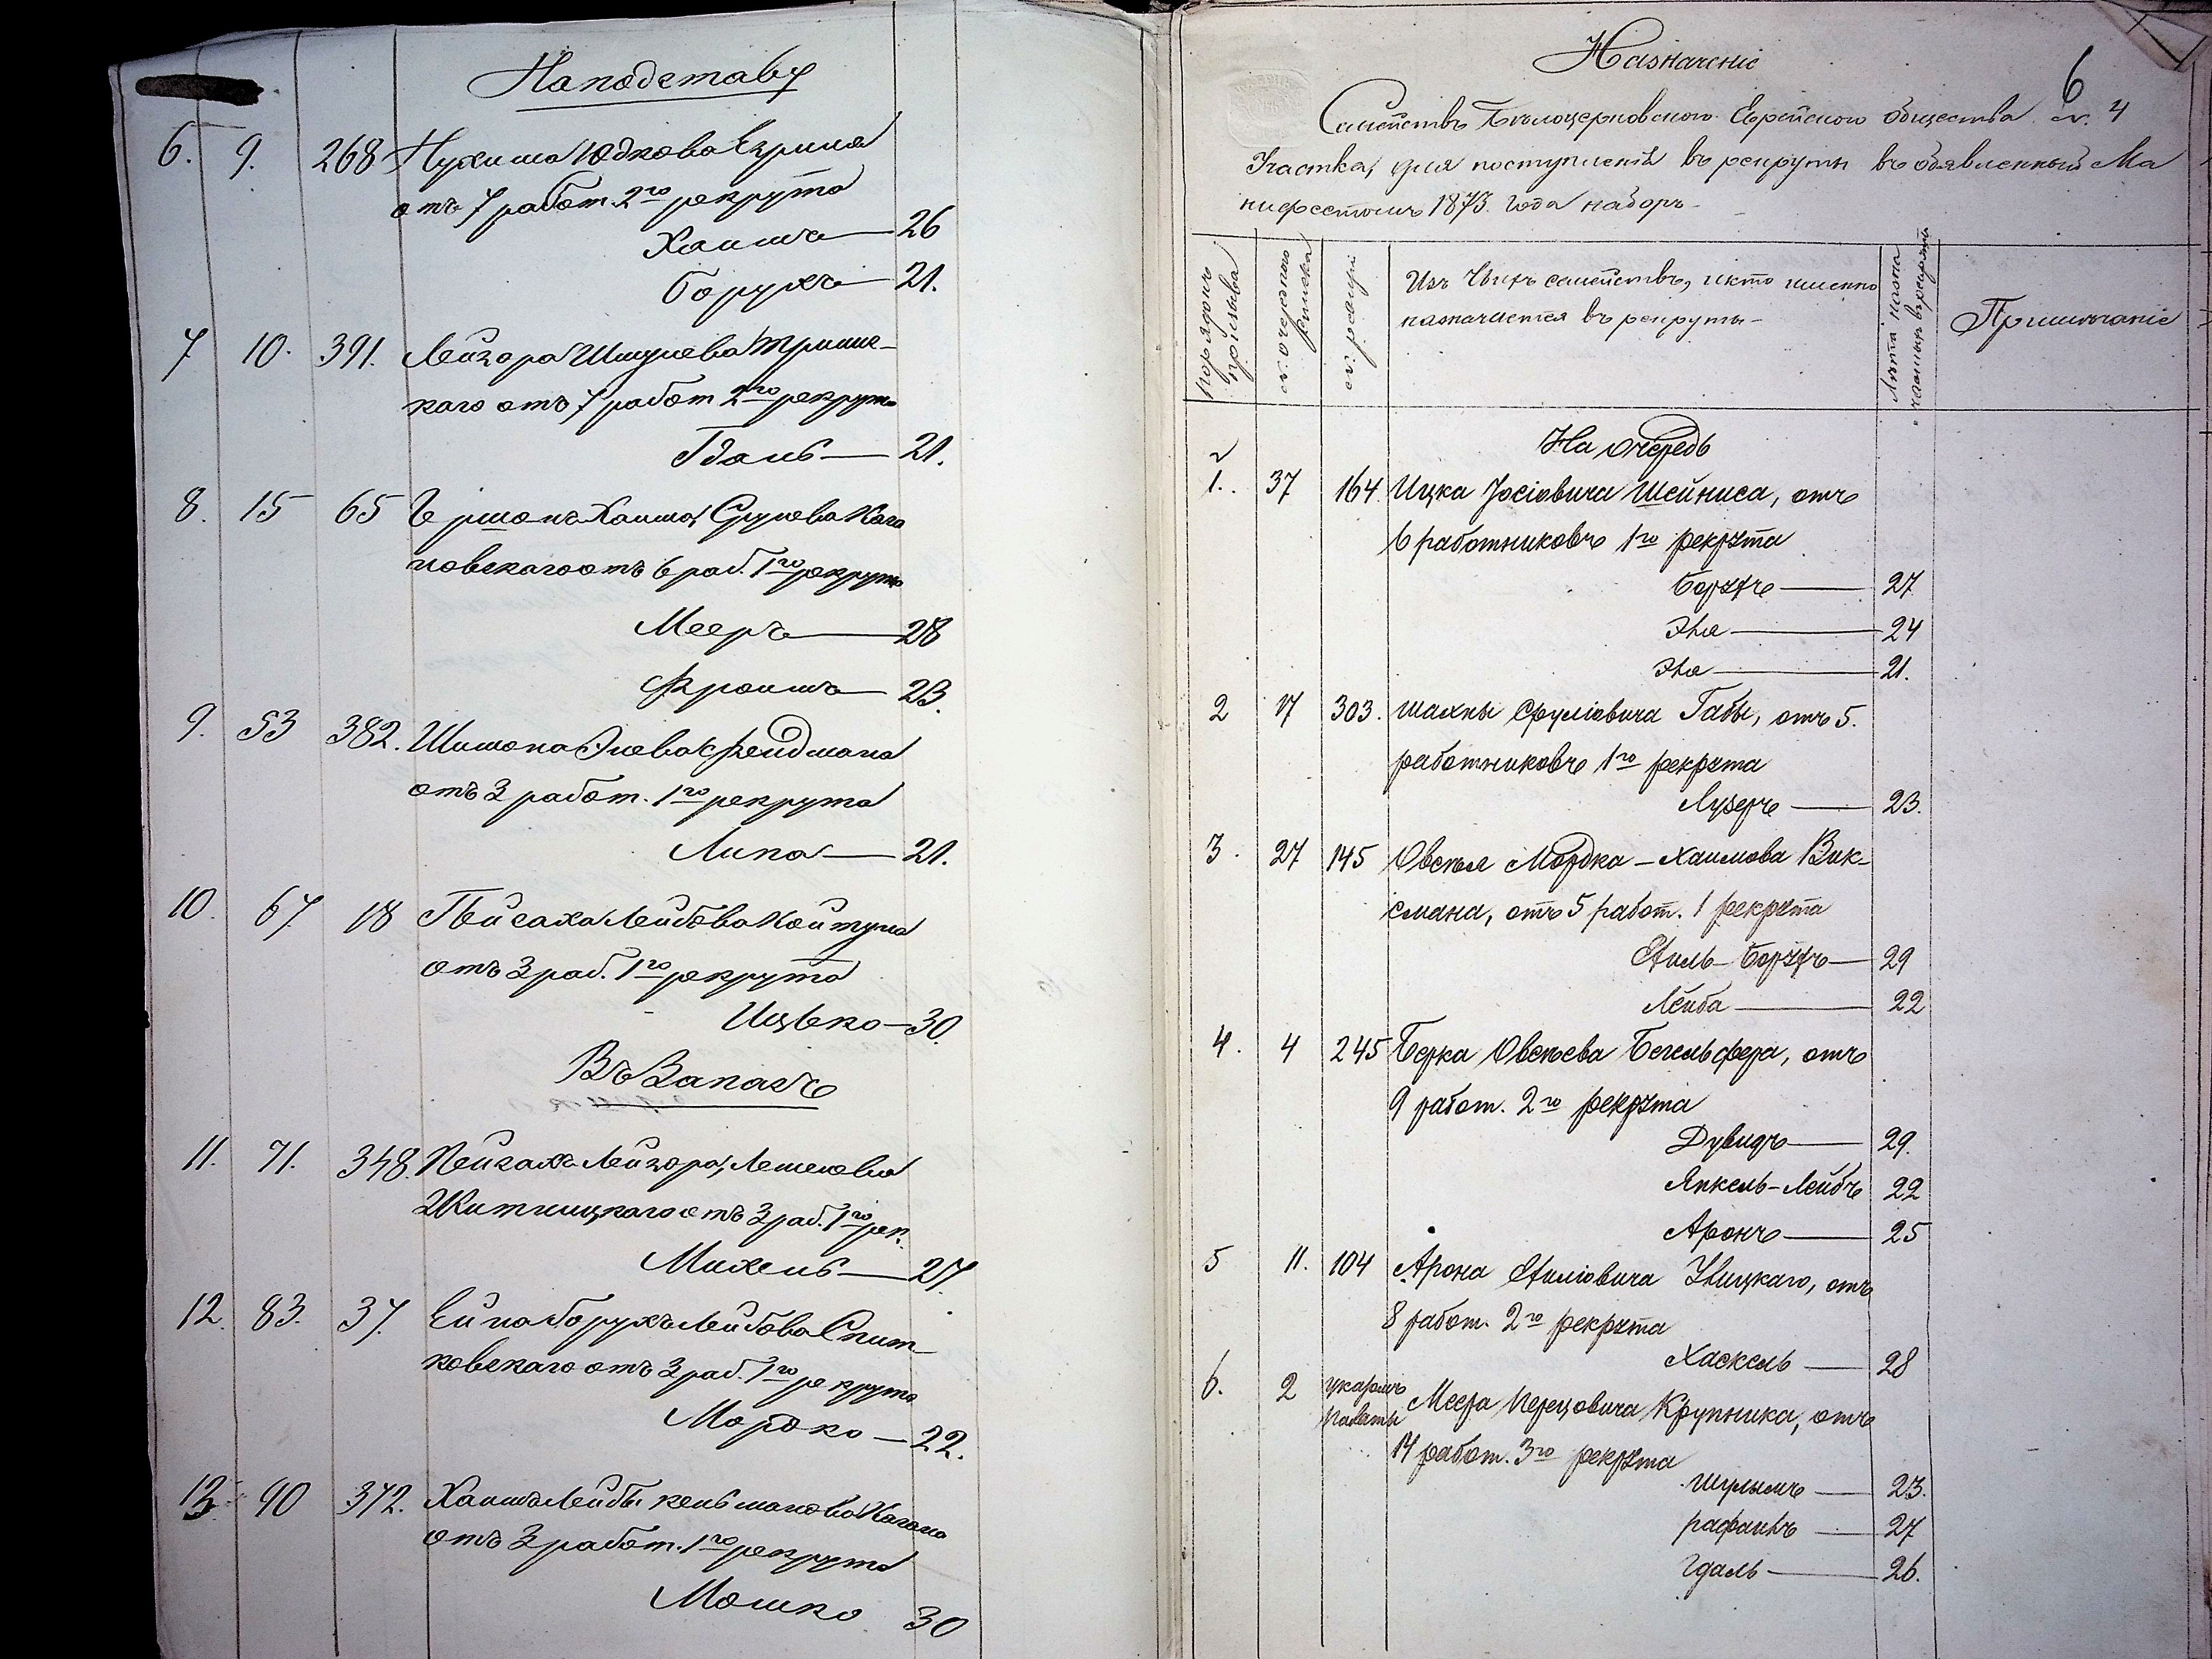 На подставу
6. 9. 268 Нухима Юдкова Езрина
отъ 7 работ. 2го рекрута
Хаимъ — 26
Борухъ — 21.
7 10. 391. Лейзора Шмулева
каго отъ 7 работ 2го рекрута
Гдаль — 21.
8. 15 65 Гершонъ Хаима Срулева Кага
новскаго отъ 6 раб. 1го рекрута
Мееръ — 28
Фроимъ — 23.
9. 53 382. Шимона Элева Фендмана
отъ 3 работ. 1го рекрута
Липа — 21.
10. 67. 18 Пейсаха Лейбова Койтуна
отъ 3 раб. 1го рекрута
Ицько — 30.
Въ Запасъ
11. 71. 348. Пейсахъ Лейзора
Житницкаго отъ 3 раб. 1го рек.
Михель — 27.
12. 83. 37. Борухъ Лейбова Спит-
ковскаго отъ 3 раб. 1го рекрута
Мордко — 22.
13. 90 372. Хаимъ Лейбы Кельманова Кагана
отъ 3 работ. 1го рекрута
Мошко 30
6
Назначеніе
Семействъ Бѣлоцерковскаго Еврейскаго общества № 4
Участка, для поступленія въ рекруты въ объявленный Ма
нифестомъ 1873. года наборъ
Порядокъ призыва
№ очереднаго списка
№ ревизіи
Изъ чьихъ семействъ, и кто именно
назначается въ рекруты
Лѣта назна
чаемыхъ въ рекруты
Примѣчаніе
На очередь
1. 37 164. Ицка Іосіовича Шейниса, отъ
6 работниковъ 1го рекрута
Борухъ — 27
Эля — 24
— 21.
2 17 303. Шахны Сруліовича Габы, отъ 5.
работниковъ 1го рекрута
Лузеръ — 23.
3. 27 145 Овсѣя Мордка-Хаимова Вак-
смана, отъ 5 работ. 1 рекрута
Борухъ — 29
Лейба — 22
4. 4 245 Берка Овсѣева Бегельфера, отъ
9 работ. 2го рекрута
Дувидъ — 29.
Янкель-Лейбъ 22
Аронъ — 25
5 11. 104 Арона отъ
8 работ. 2го рекрута
Хаскель — 28
6. 2 Меера Перецовича Крупника, отъ
14 работ. 3го рекрута
Шулымъ — 23.
Рафаилъ — 27
Гдаль — 26.